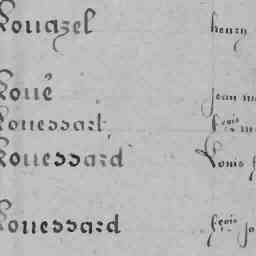 Rouazel henry
Roué jean
Rouessart fçois
Rouessard Louis
Rouessard fçois